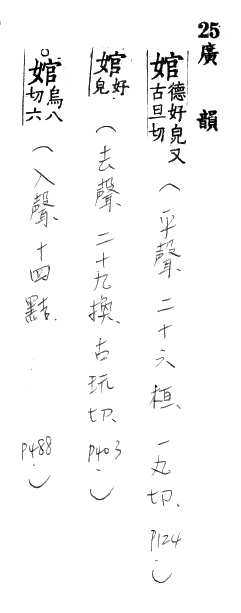 25廣韻
婠德好皃又古旦切（平聲、二十六桓、一丸切、P124.）
婠好皃（去聲、二十九換、古玩切、P403.）
婠烏八切六（入聲、十四黠、P488.）